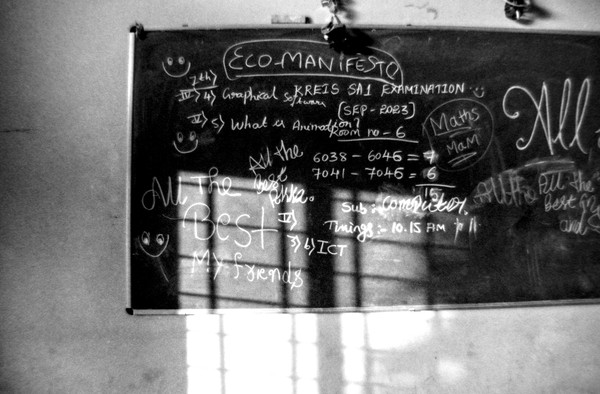 ECO-MANIFESTO
7th)
IV) 4) Graphical Software
KREIS SA1 EXAMINATION
(SEP-2023)
IV) 5) What is Animation?
Room no-6
Maths
Mam
6038 - 6046 = 7
7041 - 7046 = 6
15
Sub:- Computer.
Timings:- 10.15 AM
All the
best
All The
Best
My friends
II)
3) 6) ICT
All
All the
All the
Best
and